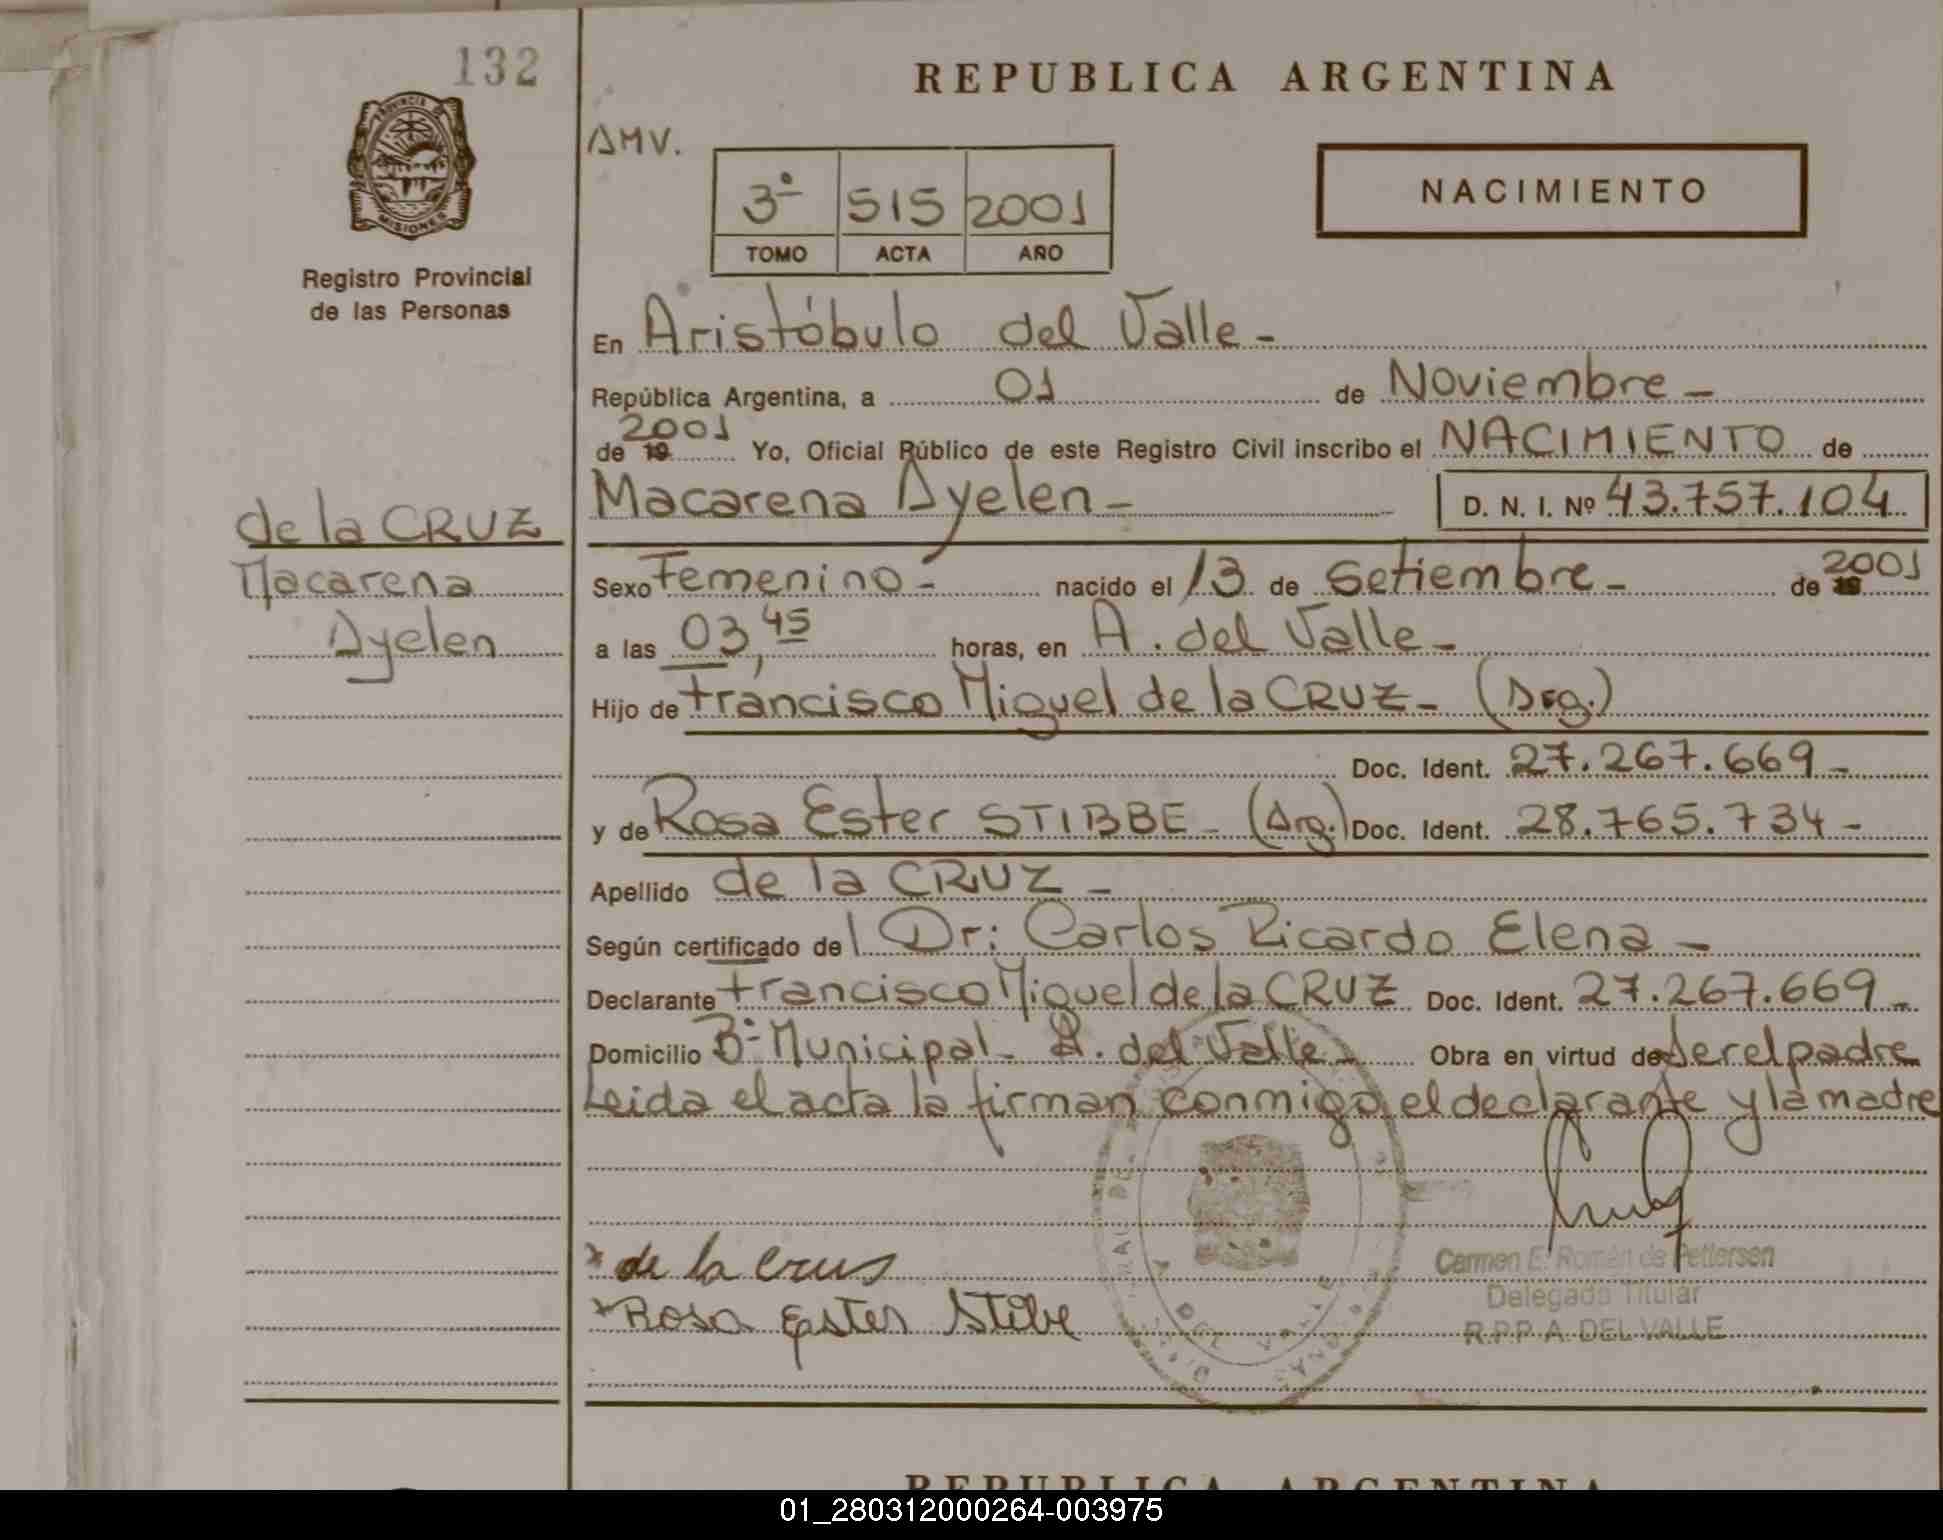 132
PROVINCIA DE
MISIONES
Registro Provincial
de las Personas
REPUBLICA ARGENTINA
AMV.
3º 515 2001
TOMO ACTA AÑO
NACIMIENTO
En Aristóbulo del Valle -
República Argentina, a 01 de Noviembre -
de 19 2001 Yo, Oficial Público de este Registro Civil inscribo el NACIMIENTO de
Macarena Ayelen - D. N. I. Nº 43.757.104
de la CRUZ
Macarena
Ayelen
Sexo Femenino - nacido el 13 de Setiembre - de 2001
a las 03,45 horas, en A. del Valle -
Hijo de Francisco Miguel de la CRUZ - (Arg.)
Doc. Ident. 27.267.669 -
y de Rosa Ester STIBBE - (Arg.) Doc. Ident. 28.765.734 -
Apellido de la CRUZ -
Según certificado del Dr: Carlos Ricardo Elena -
Declarante Francisco Miguel de la CRUZ Doc. Ident. 27.267.669 -
Domicilio Bº Municipal - A. del Valle - Obra en virtud de ser el padre
Leida el acta la firman conmigo el declarante y la madre
* de la Crus
* Rosa Ester Stibe
DEL VALLE
Carmen E. Román de Pettersen
Delegada Titular
R.P.P. A. DEL VALLE
REPUBLICA ARGENTINA
01_280312000264-003975